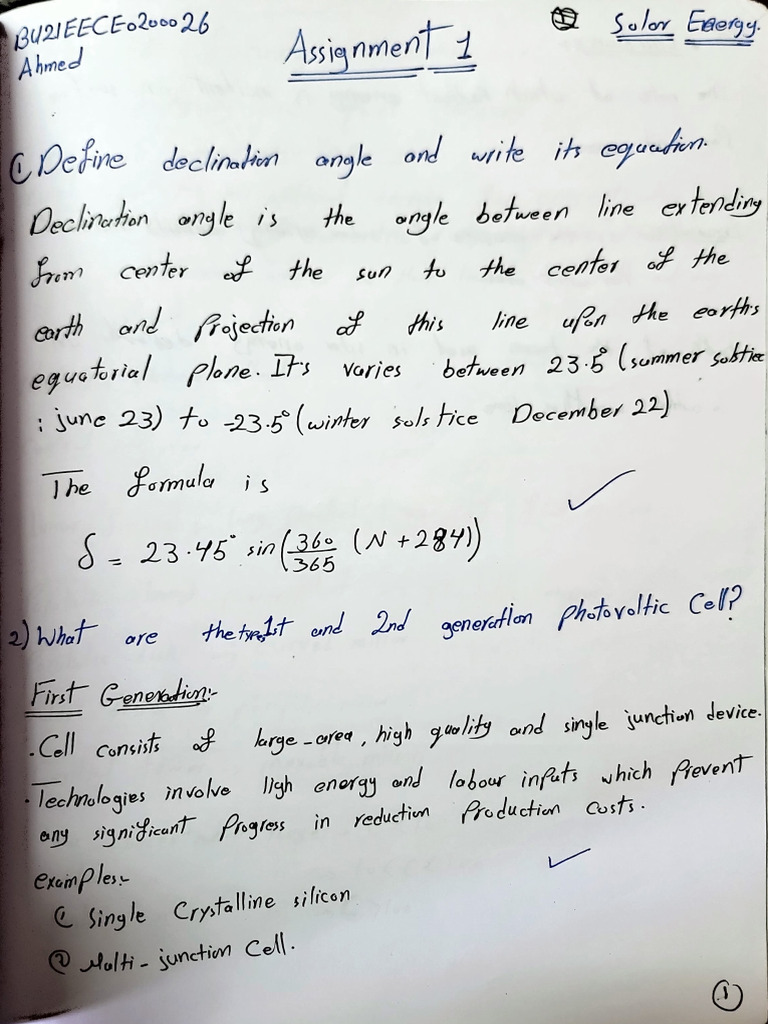 BU21EECE0200026
Ahmed
Assignment 1
Solar Energy.
① Define declination angle and write its equation.
Declination angle is the angle between line extending
from center of the sun to the center of the
earth and projection of this line upon the earths
equatorial plane. It's varies between 23.5° (summer solstice
: june 23) to -23.5° (winter solstice December 22)
The formula is
δ = 23.45° sin(360/365 (N + 284))
2) What are the types 1st and 2nd generation photovoltic Cell?
First Generation:-
. Cell consists of large-area, high quality and single junction device.
. Technologies involve high energy and labour inputs which prevent
any significant progress in reduction production costs.
examples:-
① Single Crystalline silicon
② Multi-junction Cell.
①